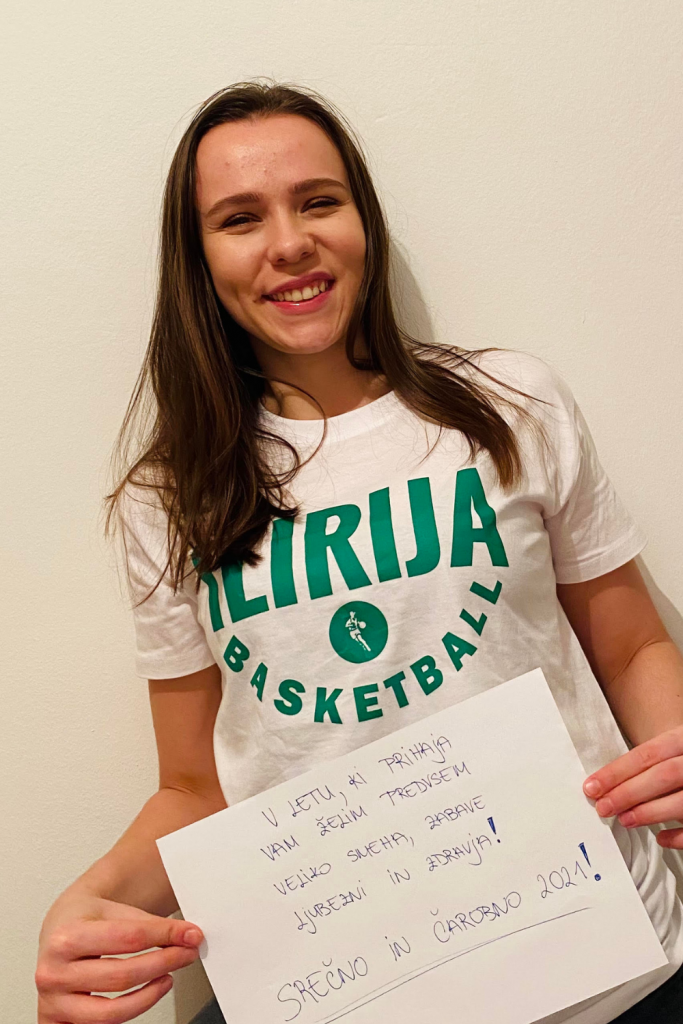 ILIRIJA
BASKETBALL
V LETU, KI PRIHAJA
VAM ŽELIM PREDVSEM
VELIKO SMEHA, ZABAVE
LJUBEZNI IN ZDRAVJA!
SREČNO IN ČAROBNO 2021!